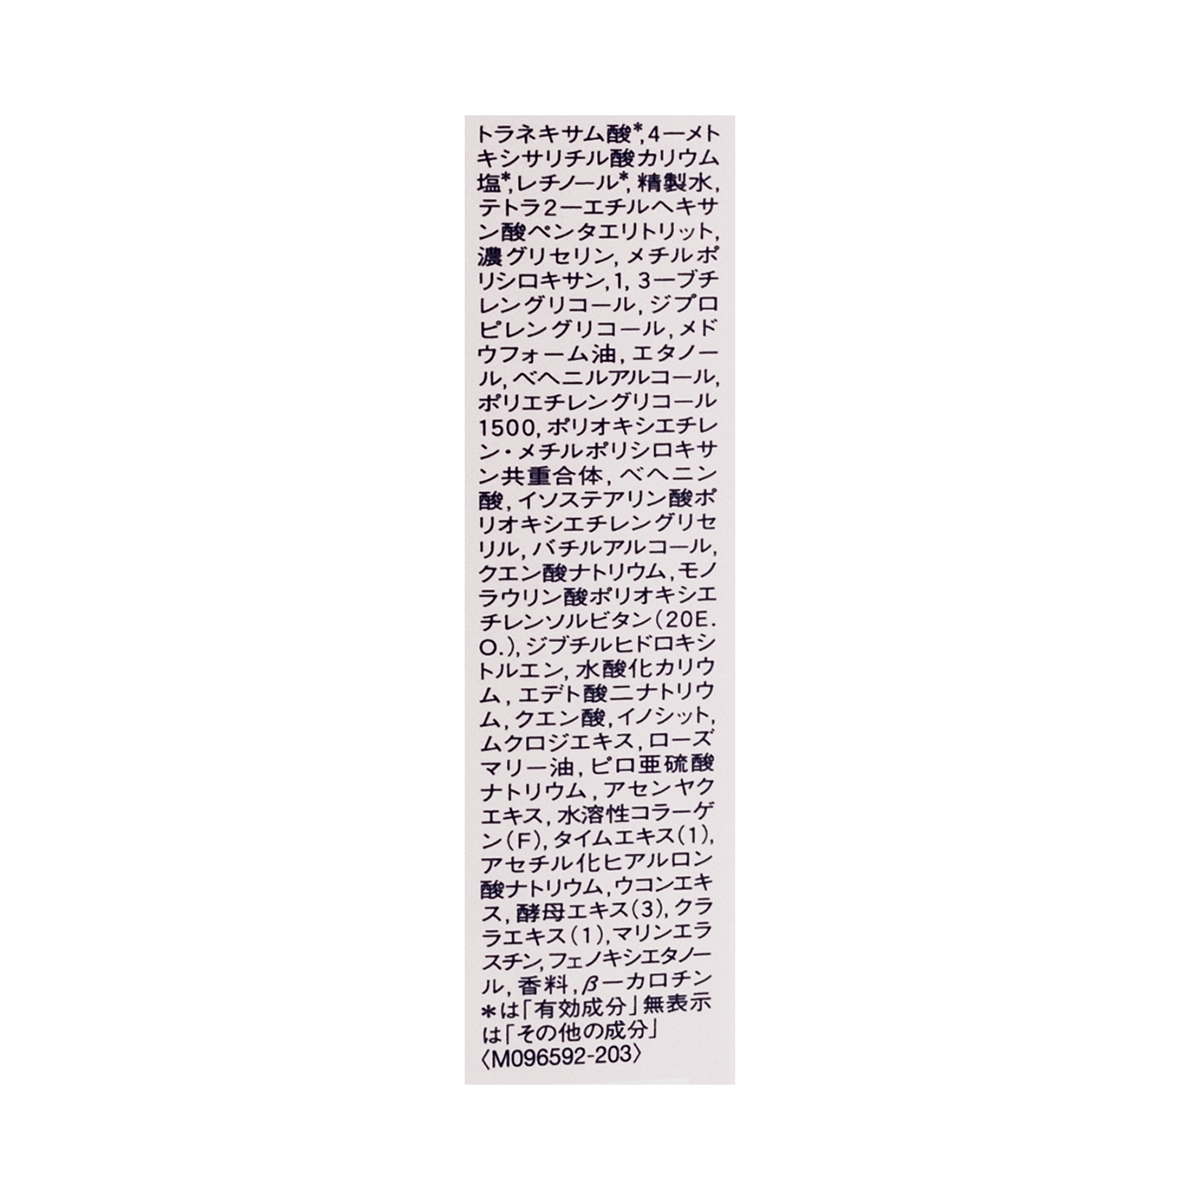 トラネキサム酸*,4ーメト
キシサリチル酸カリウム
塩*,レチノール*,精製水,
テトラ2ーエチルヘキサ
ン酸ペンタエリトリット,
濃グリセリン,メチルポ
リシロキサン,1,3ーブチ
レングリコール,ジプロ
ピレングリコール,メド
ウフォーム油,エタノー
ル,ベヘニルアルコール,
ポリエチレングリコール
1500,ポリオキシエチレ
ン・メチルポリシロキサ
ン共重合体,ベヘニン
酸,イソステアリン酸ポ
リオキシエチレングリセ
リル,バチルアルコール,
クエン酸ナトリウム,モノ
ラウリン酸ポリオキシエ
チレンソルビタン(20E.
O.),ジブチルヒドロキシ
トルエン,水酸化カリウ
ム,エデト酸二ナトリウ
ム,クエン酸,イノシット,
ムクロジエキス,ローズ
マリー油,ピロ亜硫酸
ナトリウム,アセンヤク
エキス,水溶性コラーゲ
ン(F),タイムエキス(1),
アセチル化ヒアルロン
酸ナトリウム,ウコンエキ
ス,酵母エキス(3),クラ
ラエキス(1),マリンエラ
スチン,フェノキシエタノー
ル,香料,βーカロチン
*は「有効成分」無表示
は「その他の成分」
〈M096592-203〉